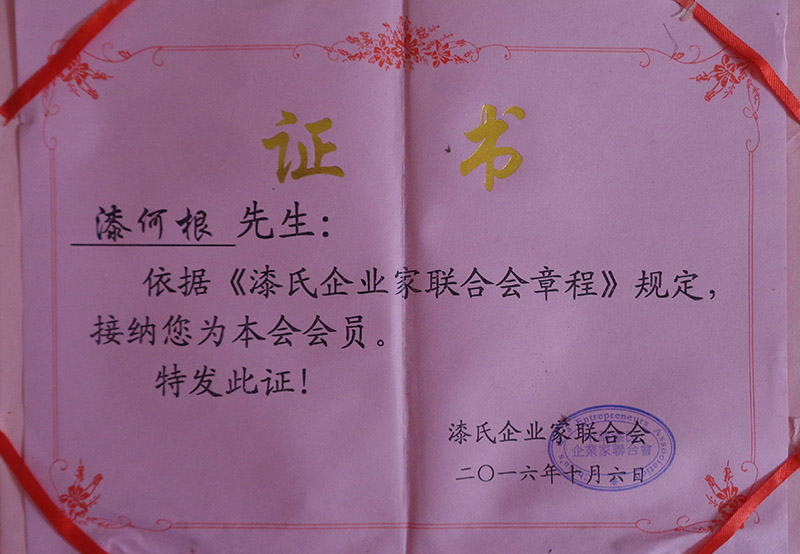 证书
漆何根 先生：
依据《漆氏企业家联合会章程》规定，
接纳您为本会会员。
特发此证！
漆氏企业家联合会
二〇一六年十月六日
Entrepreneurs Association
企業家聯合會